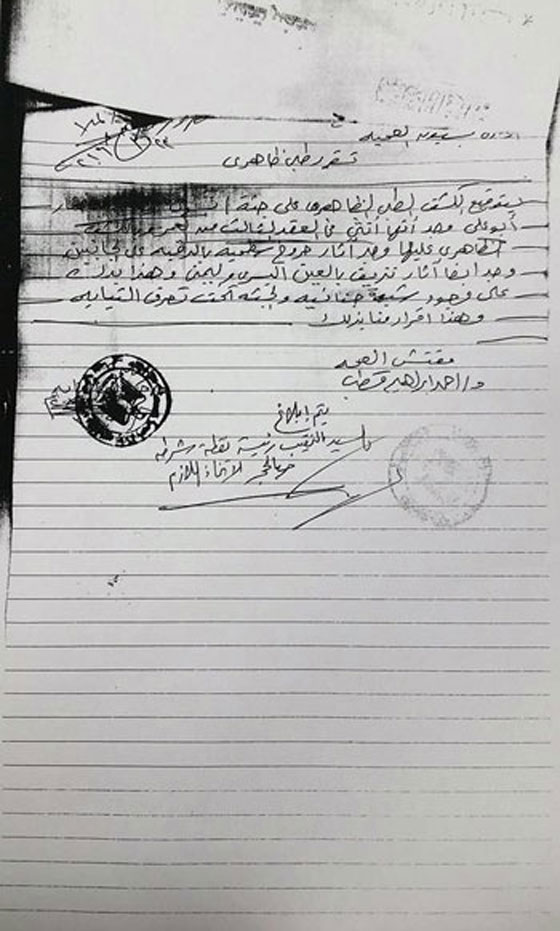 تقرير طبى ظاهرى
بتوقيع الكشف الطبى الظاهرى على جثة
أبو على وجد أنها أنثى فى العقد الثالث من العمر وبالكشف
الظاهرى عليها وجد آثار جروح سطحية بالرقبة على الجانبين
وجد ايضا آثار نزيف بالعين اليسرى واليمنى وهذا يدل
على وجود شبهة جنائية والجثة تحت تصرف النيابة
وهذا اقرار منا بذلك
مفتش الصحة
د/ احمد ابراهيم قطب
يتم إبلاغ
السيد النقيب رئيس نقطة شرطة
لاتخاذ اللازم